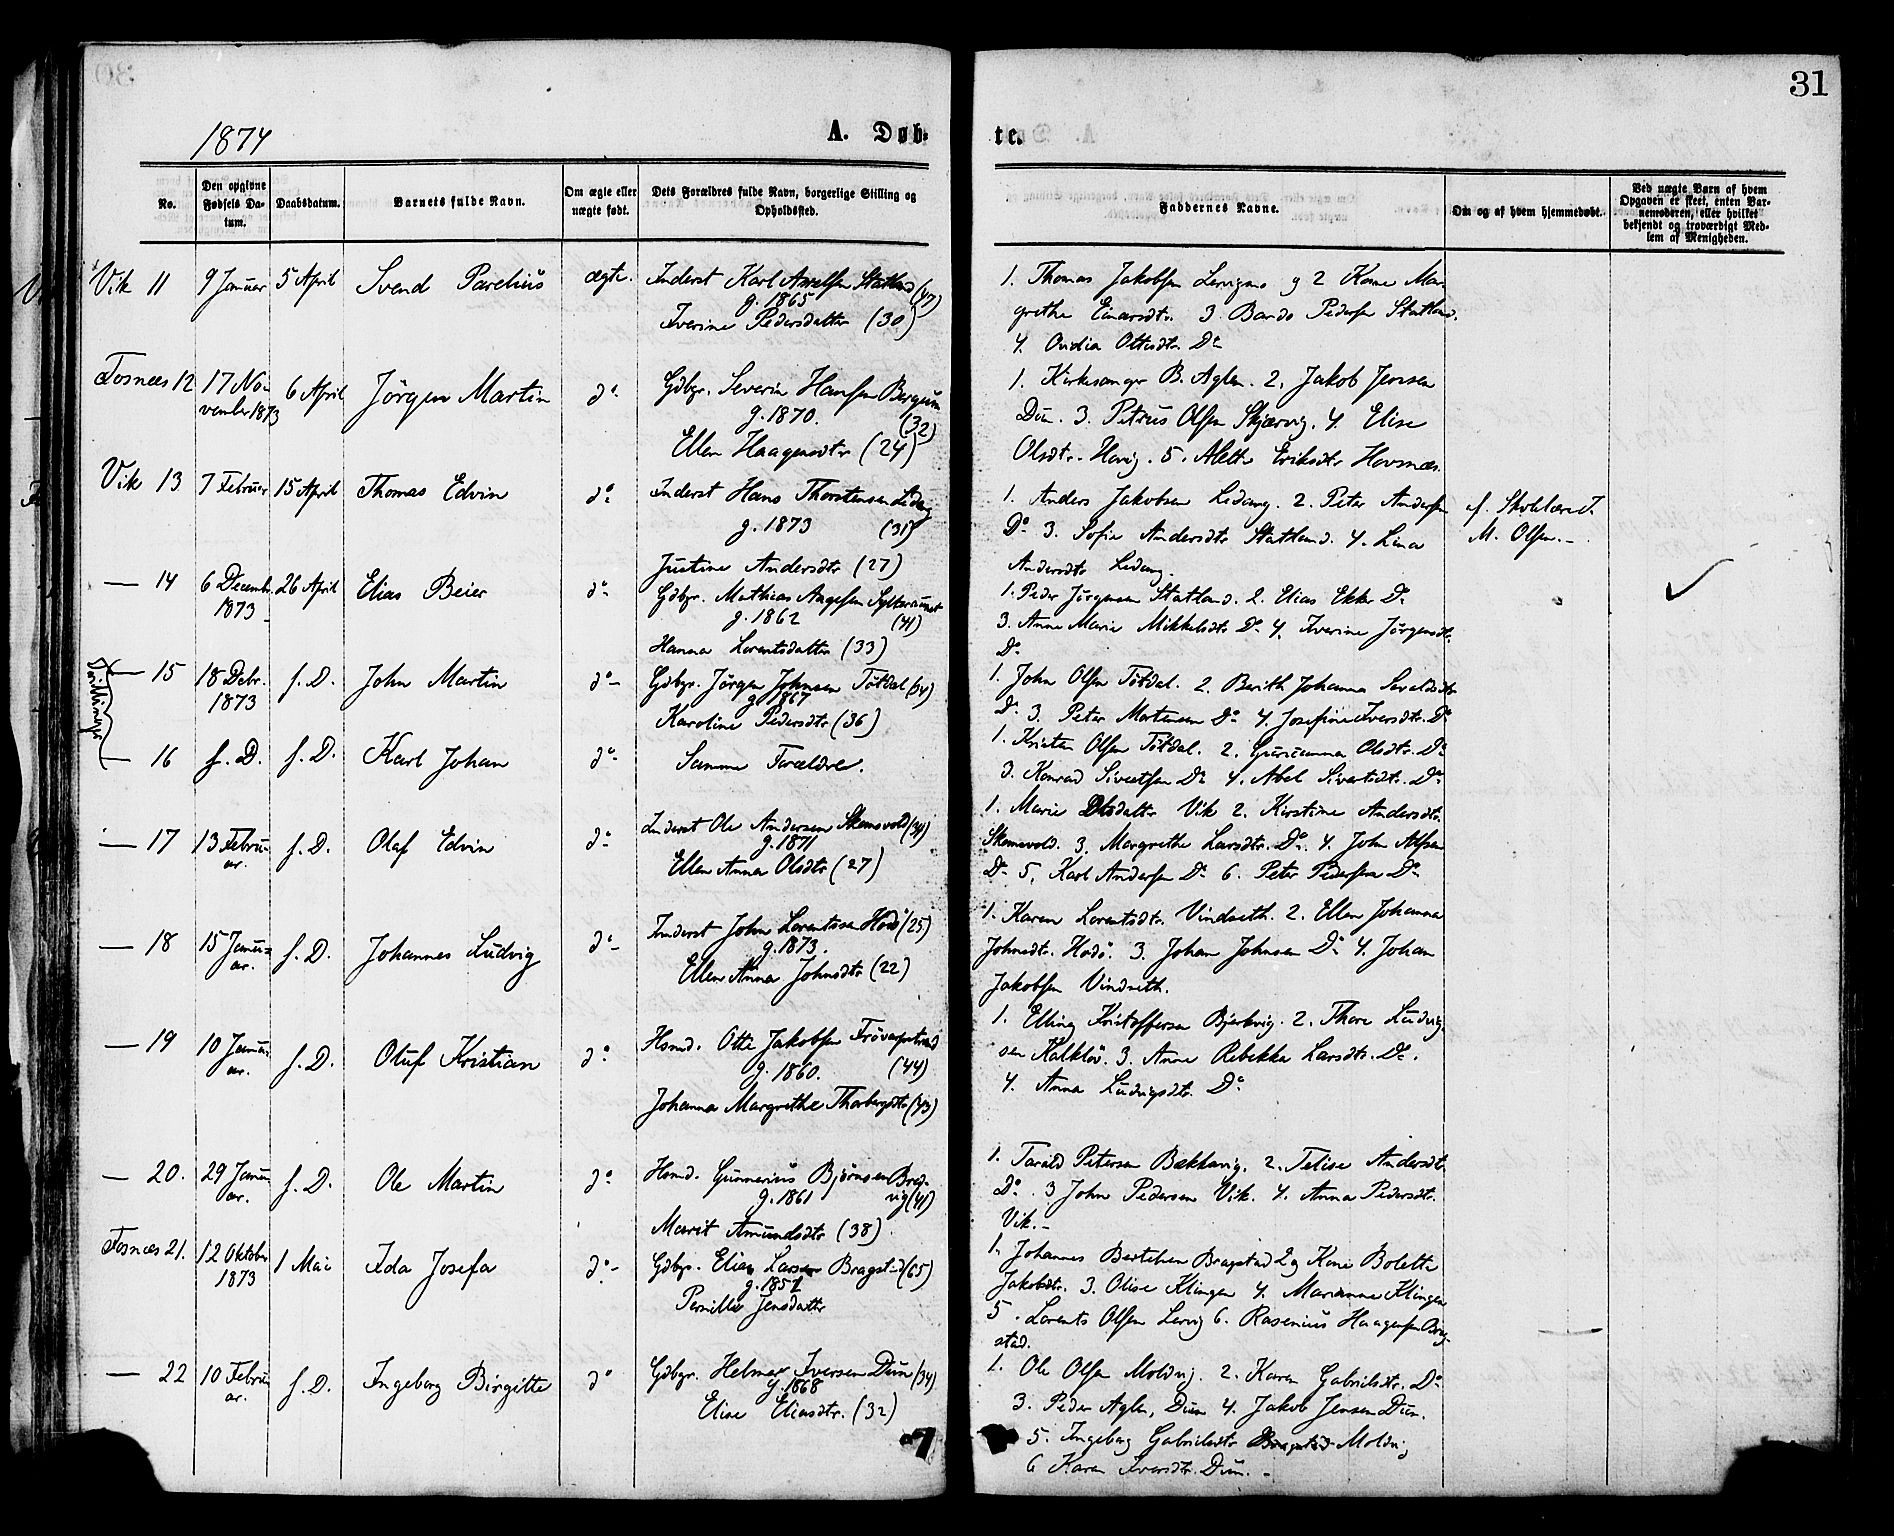 31
1874
A. Døb-
te.
No.
Den opgivne Fødsels Da-
tum.
Daabsdatum.
Barnets fulde Navn.
Om ægte eller
uægte født.
Dets Forældres fulde Navn, borgerlige Stilling og
Opholdssted.
Faddernes Navne.
Om og af hvem hjemmedøbt.
Ved uægte Børn af hvem
Opgaven er skeet, enten Bar-
nemoderen, eller hvilket
bekjendt og troværdigt Med-
lem af Menigheden.
Vik 11 9 Januar 5 April Svend Parelius ægte. Inderst Karl Axelsen Statland (47)
g. 1865
Iverine Pedersdatter (30)
1. Thomas Jakobsen og 2 Kone Mar-
grethe Einarsdtr. 3. Bardo Pedersen Statland.
4. Ovidia Ottesdtr. Do
Fosnæs 12 17 No-
vember 1873 6 April Jörgen Martin do Gdbgr. Severin Hansen Bergum
g. 1870. (32)
Ellen Haagensdtr (24)
1. Kirkesanger B. Aglen. 2. Jakob Jensen
Dun. 3. Petrus Olsen Skjærvig. 4. Elise
Olsdtr. Hovig. 5. Aleth Eriksdtr Hovnæs.
Vik 13 7 Februar 15 April Thomas Edvin do Inderst Hans Thorstensen Ledang
g. 1873 (31)
Justine Andersdtr (27)
1. Anders Jakobsen Ledang. 2. Peter Andersen
Do 3. Sofie Andersdtr Statland. 4. Lina
Andersdtr Ledang.
af Skolelærer J.
M. Olsen. -
— 14 6 Decembr.
1873 26 April Elias Beier do Gdbgr. Mathias Angelsen
g. 1862 (41)
Hanna Lorentsdatter (33)
1. Peder Jörgensen Statland. 2. Elias Ekker Do
3. Anne Marie Mikkelsdtr Do 4. Iverine Jörgensdtr.
Do
Tvillinger
— 15 18 Debr.
1873 f. D. John Martin do Gdbgr. Jörgen Johnsen Tötdal (34)
g. 1867
Karoline Pedersdtr (36)
1. John Olsen Tötdal. 2. Berith Johanna Sevaldsdtr
Do 3. Peter Mortensen Do 4. Josefine Iversdtr. Do
— 16 f. D. f. D. Karl Johan do Samme Forældre.
1. Kristen Olsen Tötdal. 2. Olsdtr. Do
3. Konrad Sivertsen Do 4. Abel Sivertsdtr. Do
— 17 13 Febru-
ar. f. D. Olaf Edvin do Inderst Ole Andersen Skomsvold (34)
g. 1871
Ellen Anna Olsdtr (27)
1. Marie Olsdatter Vik 2. Kirstine Andersdtr.
Skomsvold. 3. Margrethe Larsdtr. Do. 4. John Alfsen
Do 5. Karl Andersen Do 6. Peter Pedersen Do
— 18 15 Janu-
ar. f. D. Johannes Ludvig do Inderst John Lorentssen Hodö (25)
g. 1873.
Ellen Anna Johnsdtr (22)
1. Karen Lorentsdtr. Vindseth. 2. Ellen Johanna
Johnsdtr. Hodö. 3. Johan Johnsen Do 4. Johan
Jakobsen Vindseth.
— 19 10 Janu-
ar. f. D. Oluf Kristian do Hsmd. Otte Jakobsen
g. 1860. (44)
Johanna Margrethe Thorbergsdtr (43)
1. Elling Kristoffersen Bjerkvig. 2. Thore Ludvig-
sen Kalklöv. 3. Anne Rebekka Larsdtr. Do.
4. Anna Ludvigsdtr. Do
— 20. 29 Janu-
ar. f. D. Ole Martin do Hsmd. Gunnerius Björnsen Bræk-
g. 1861 vig (41)
Marit Amundsdtr (38)
1. Tarald Petersen Bækkavig. 2. Telise Andersdtr.
Do. 3 John Pedersen Vik. 4. Anna Pedersdtr.
Vik. -
Fosnæs 21. 12 Oktober
1873 1 Mai Ida Josefa do Gdbgr. Elias Larsen Bragstad (65)
g. 1857
Pernille Jensdatter
1. Johannes Bertelsen Bragstad 2 og Kone Bolette
Jakobsdtr. 3. Olise Klingen 4. Marianne Klingen
5. Lorents Olsen Lervig 6. Rasenius Haagensen Brag-
stad.
— 22 10 Febru-
ar. f. D. Ingeborg Birgitte do Gdbgr. Helmer Iversen Dun (34)
g. 1868
Elise Eliasdtr. (32)
1. Ole Olsen Moldvig. 2. Karen Gabrielsdtr. Do
3. Peder Aglen, Dun 4. Jakob Jensen Dun.
5. Ingeborg Gabrielsdtr Moldvig
6 Karen Iversdtr. Dun. -